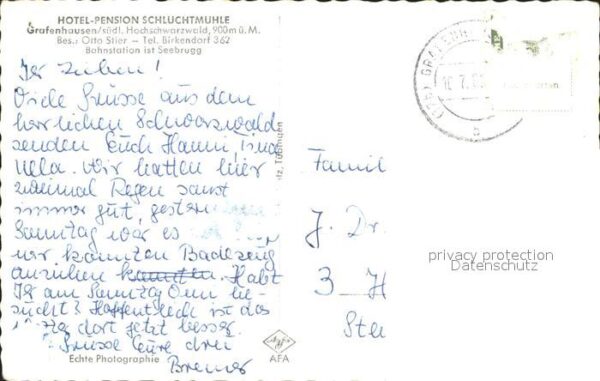 HOTEL-PENSION SCHLUCHTMÜHLE
Grafenhausen/südl. Hochschwarzwald, 900m ü. M.
Bes.: Otto Stier – Tel. Birkendorf 362
Bahnstation ist Seebrugg
Ihr Lieben!
Viele Grüsse aus dem
herrlichen Schwarzwald
senden Euch Hanni,
Wir hatten hier
zweimal Regen sonst
immer gut, gestern
Sonntag war es
wir konnten Badezeug
anziehen konnten. Habt
Ihr am Sonntag Omi be-
sucht? Hoffentlich ist das
dort jetzt besser.
Grüsse Eure drei
Bremer
Echte Photographie
Agfa
AFA
Tübingen
GRAFENH
b
Famil
J. Dr.
3 H
privacy protection
Datenschutz